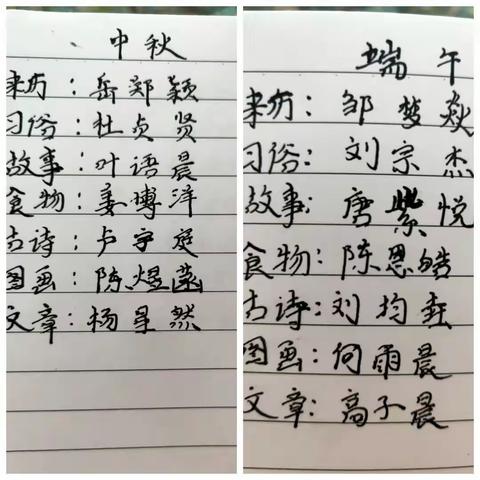 中秋
来历：岳郑颖
习俗：杜贞贤
故事：叶语晨
食物：姜博洋
古诗：卢宇庭
图画：陈煜菡
文章：杨星然
端午
来历：邹梦焱
习俗：刘宗杰
故事：唐紫悦
食物：陈恩皓
古诗：刘均垚
图画：何雨晨
文章：高子晨